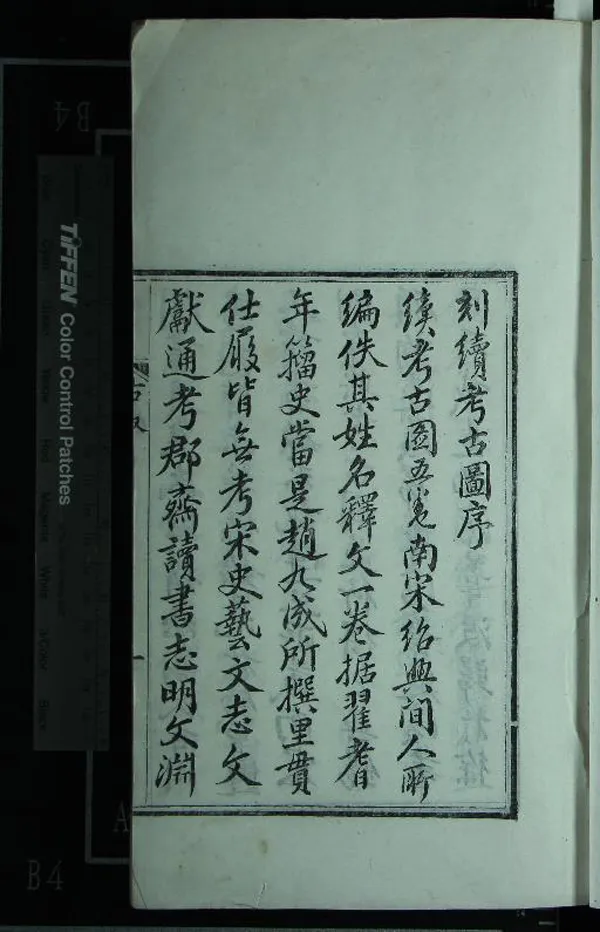 刻續考古圖序
續考古圖五卷南宋紹興間人所
編佚其姓名釋文一卷據翟耆
年籀史當是趙九成所撰里貫
仕履皆無考宋史藝文志文
獻通考郡齋讀書志明文淵
TIFFEN Color Control Patches
B4
B4
A